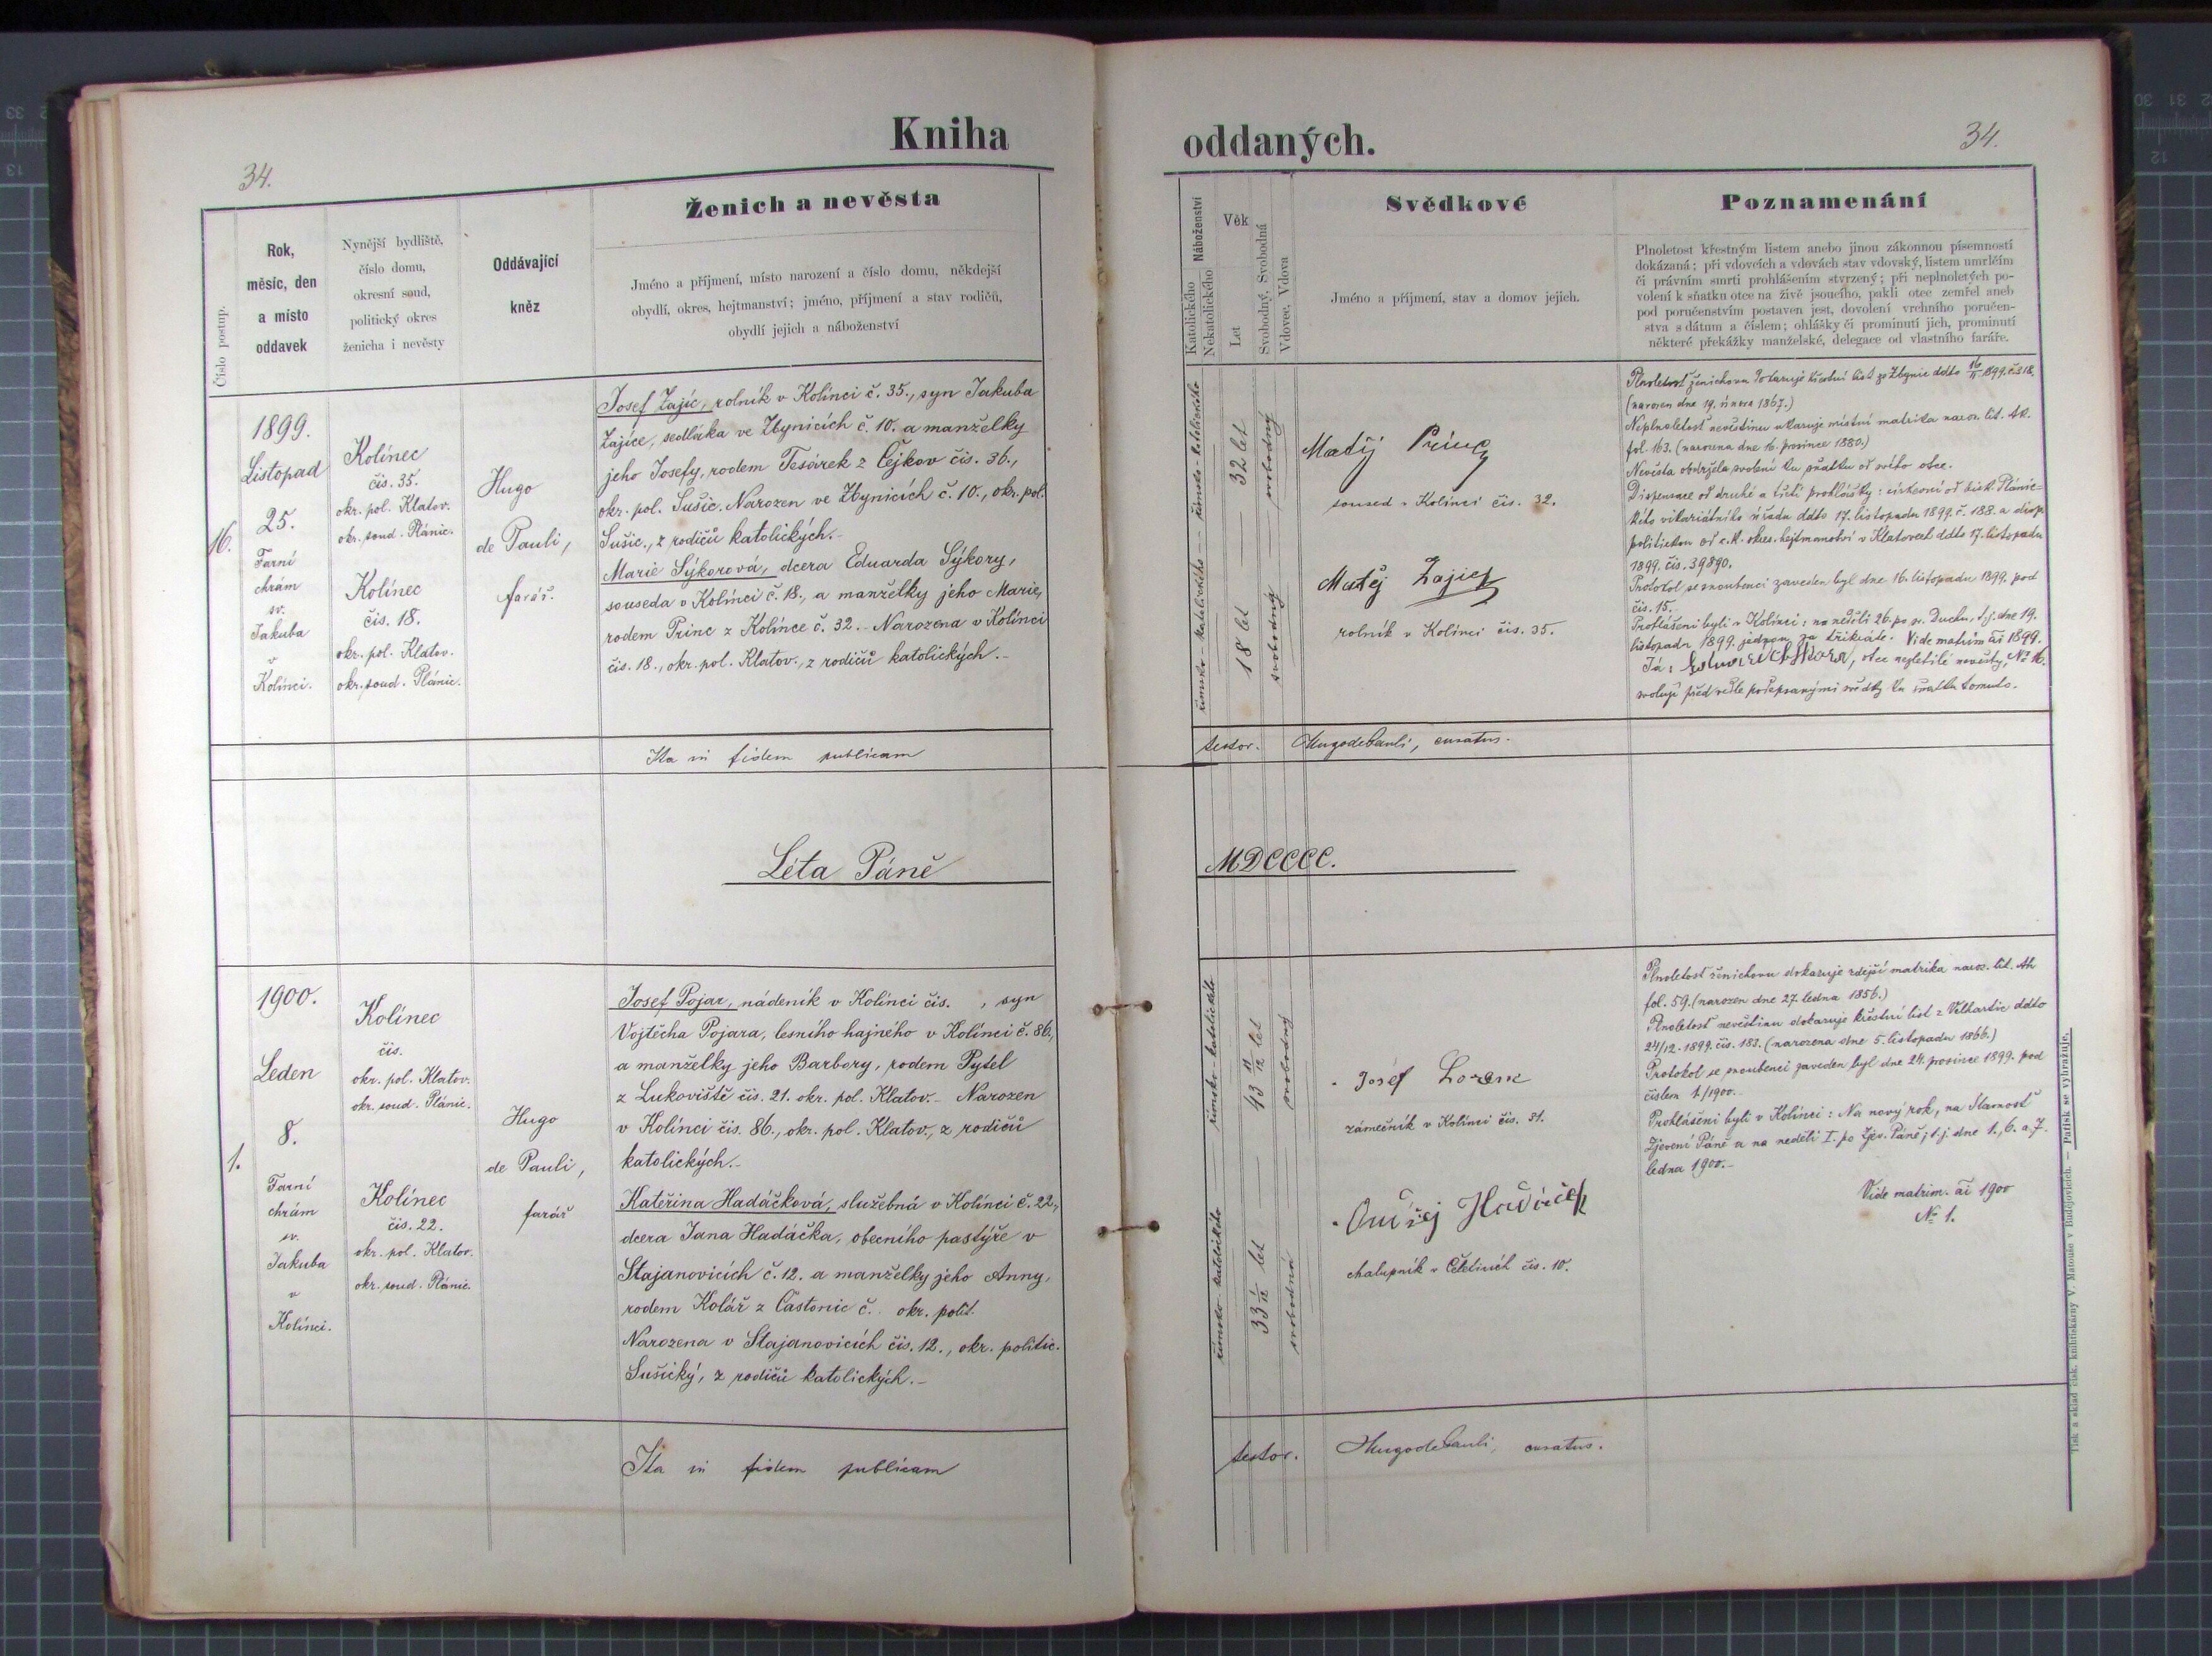 Kniha
oddaných.
34.
34.
Číslo postup.
Rok,
měsíc, den
a místo
oddavek
Nynější bydliště,
číslo domu,
okresní soud,
politický okres
ženicha i nevěsty
Oddávající
kněz
Ženich a nevěsta
Jméno a příjmení, místo narození a číslo domu, někdejší
obydlí, okres, hejtmanství; jméno, příjmení a stav rodičů,
obydlí jejich a náboženství
Náboženství
Katolického
Nekatolického
Věk
Let
Svobodný, Svobodná
Vdovec, Vdova
Svědkové
Jméno a příjmení, stav a domov jejich.
Poznamenání
Plnoletost křestným listem anebo jinou zákonnou písemností
dokázaná; při vdovcích a vdovách stav vdovský, listem umrlčím
či právním smrti prohlášením stvrzený; při neplnoletých po-
volení k sňatku otce na živě jsoucího, pakli otec zemřel aneb
pod poručenstvím postaven jest, dovolení vrchního poručen-
stva s dátum a číslem; ohlášky či prominutí jich, prominutí
některé překážky manželské, delegace od vlastního faráře.
16.
1899.
Listopad
25.
Farní
chrám
sv.
Jakuba
v
Kolinci.
Kolínec
čis. 35.
okr. pol. Klatov.
okr. soud. Plánic.
Kolínec
čis. 18.
okr. pol. Klatov.
okr. soud. Plánic.
Hugo
de Pauli,
farář.
Josef Zajíc, rolník v Kolínci č. 35., syn Jakuba
Zajíce, sedláka ve Zbynicích č. 10. a manželky
jeho Josefy, rodem Tesárek z Čejkov čis. 36.,
okr. pol. Sušic. Narozen ve Zbynicích č. 10., okr. pol.
Sušic., z rodičů katolických.-
Marie Sýkorová, dcera Eduarda Sýkory,
souseda v Kolínci č. 18., a manželky jeho Marie,
rodem Princ z Kolínce č. 32.- Narozena v Kolínci
čis. 18., okr. pol. Klatov., z rodičů katolických.-
římsko-katolického — římsko-katolického
18 let — 32 let
svobodný — svobodný
Matěj Princ
soused v Kolínci čis. 32.
Matěj Zajíc
rolník v Kolínci čis. 35.
Plnoletost ženichovu dokazuje křestní list ze Zbynic ddto 16/11 1899. č. 318.
(narozen dne 19. února 1867.)
Neplnoletost nevěstinu ukazuje místní matrika naroz. lit.
fol. 163. (narozena dne 16. prosince 1880.)
Nevěsta obdržela svolení ku sňatku od svého otce.
Dispensace od druhé a třetí prohlášky: církevní od bisk. Plánic-
kého vikariátního úřadu ddto 17. listopadu 1899. č. 188. a disp.
politickou od c. k. okres. hejtmanství v Klatovech ddto 17. listopadu
1899. čis. 39890.
Protokol se snoubenci zaveden byl dne 16. listopadu 1899. pod
čis. 15.
Prohlášeni byli v Kolínci: na neděli 26. po sv. Duchu, t. j. dne 19.
listopadu 1899. jednou za třikráte. Vide matrim ai 1899.
Já: Eduard Sýkora, otec nezletilé nevěsty, № 16.
svoluji před níže podepsanými svědky ku sňatku tomuto.
Ita in fidem publicam
testor. Hugo de Pauli, curatus.
Léta Páně
MDCCCC.
1.
1900.
Leden
8.
Farní
chrám
sv.
Jakuba
v
Kolínci.
Kolínec
čis.
okr. pol. Klatov.
okr. soud. Plánic.
Kolínec
čis. 22.
okr. pol. Klatov.
okr. soud. Plánic.
Hugo
de Pauli,
farář
Josef Pojar, nádeník v Kolínci čis. , syn
Vojtěcha Pojara, lesního hajného v Kolínci č. 86.,
a manželky jeho Barbory, rodem Pytel
z Lukoviště čis. 21. okr. pol. Klatov.- Narozen
v Kolínci čis. 86., okr. pol. Klatov., z rodičů
katolických.-
Kateřina Hadáčková, služebná v Kolínci č. 22.,
dcera Jana Hadáčka, obecního pastýře v
Stajanovicích č. 12. a manželky jeho Anny,
rodem Kolář z Častonic č. okr. polit.
Narozena v Stajanovicích čis. 12., okr. politic.
Sušický, z rodičů katolických.-
římsko-katolického — římsko-katolického
33 2/12 let — 43 11/12 let
svobodná — svobodný
Josef Lorenc
zámečník v Kolínci čis. 31.
Ondřej Hadáček
chalupník v Čeletinách čis. 10.
Plnoletost ženichovu dokazuje zdejší matrika naroz. lit. Ah
fol. 59. (narozen dne 27. ledna 1856.)
Plnoletost nevěstinu dokazuje křestní list z Velhartic ddto
24/12. 1899. čis. 183. (narozena dne 5. listopadu 1866.)
Protokol se snoubenci zaveden byl dne 24. prosince 1899. pod
číslem 1/1900.-
Prohlášeni byli v Kolínci: Na nový rok, na Slavnost
Zjevení Páně a na neděli I. po Zjev. Páně, t. j. dne 1., 6. a 7.
ledna 1900.-
Vide matrim. ai 1900
№ 1.
Ita in fidem publicam
testor. Hugo de Pauli, curatus.
Tisk a sklad čísk. knihtiskárny V. Matouše v Budějovicích. — Patisk se vyhražuje.